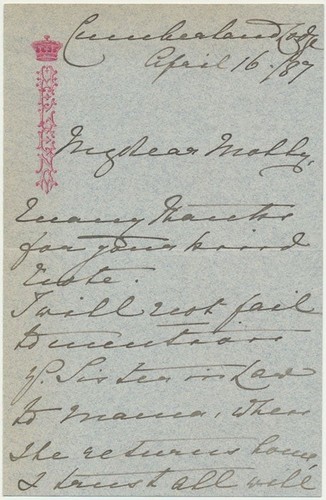 Cumberland Lodge
April 16. /87
HELENA
My dear Molly,
Many thanks
for your kind
note.
I will not fail
to mention
yr. Sister in Law
to Mama, when
she returns home,
I trust all will